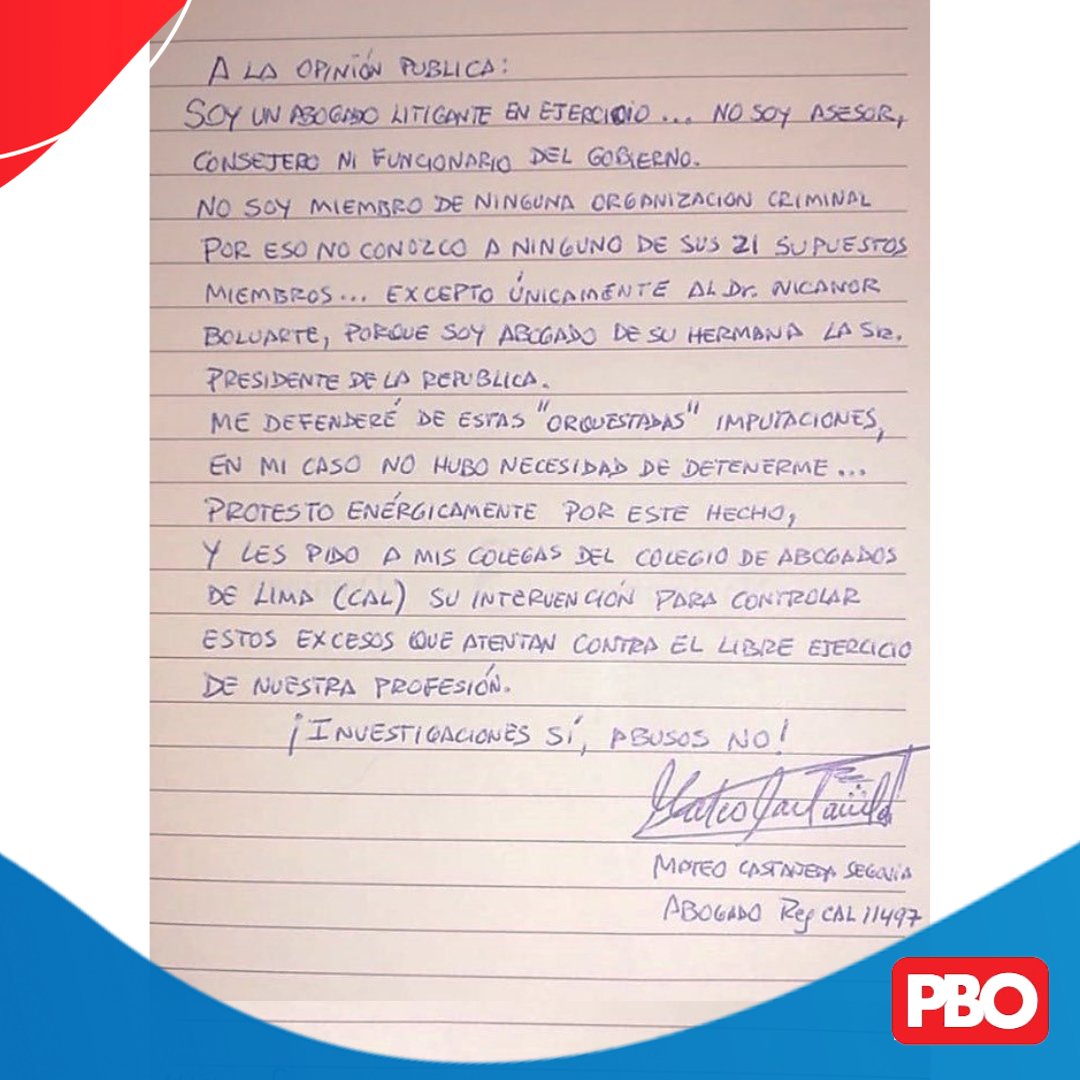 A LA OPINIÓN PUBLICA:
SOY UN ABOGADO LITIGANTE EN EJERCICIO... NO SOY ASESOR,
CONSEJERO NI FUNCIONARIO DEL GOBIERNO.
NO SOY MIEMBRO DE NINGUNA ORGANIZACION CRIMINAL
POR ESO NO CONOZCO A NINGUNO DE SUS 21 SUPUESTOS
MIEMBROS... EXCEPTO ÚNICAMENTE AL Dr. NICANOR
BOLUARTE, PORQUE SOY ABOGADO DE SU HERMANA LA Sra.
PRESIDENTE DE LA REPUBLICA.
ME DEFENDERÉ DE ESTAS "ORQUESTADAS" IMPUTACIONES,
EN MI CASO NO HUBO NECESIDAD DE DETENERME...
PROTESTO ENÉRGICAMENTE POR ESTE HECHO,
Y LES PIDO A MIS COLEGAS DEL COLEGIO DE ABOGADOS
DE LIMA (CAL) SU INTERVENCIÓN PARA CONTROLAR
ESTOS EXCESOS QUE ATENTAN CONTRA EL LIBRE EJERCICIO
DE NUESTRA PROFESIÓN.
¡INVESTIGACIONES SÍ, ABUSOS NO!
Mateo Castañeda
MATEO CASTAÑEDA SEGOVIA
ABOGADO Reg CAL 11497
PBO